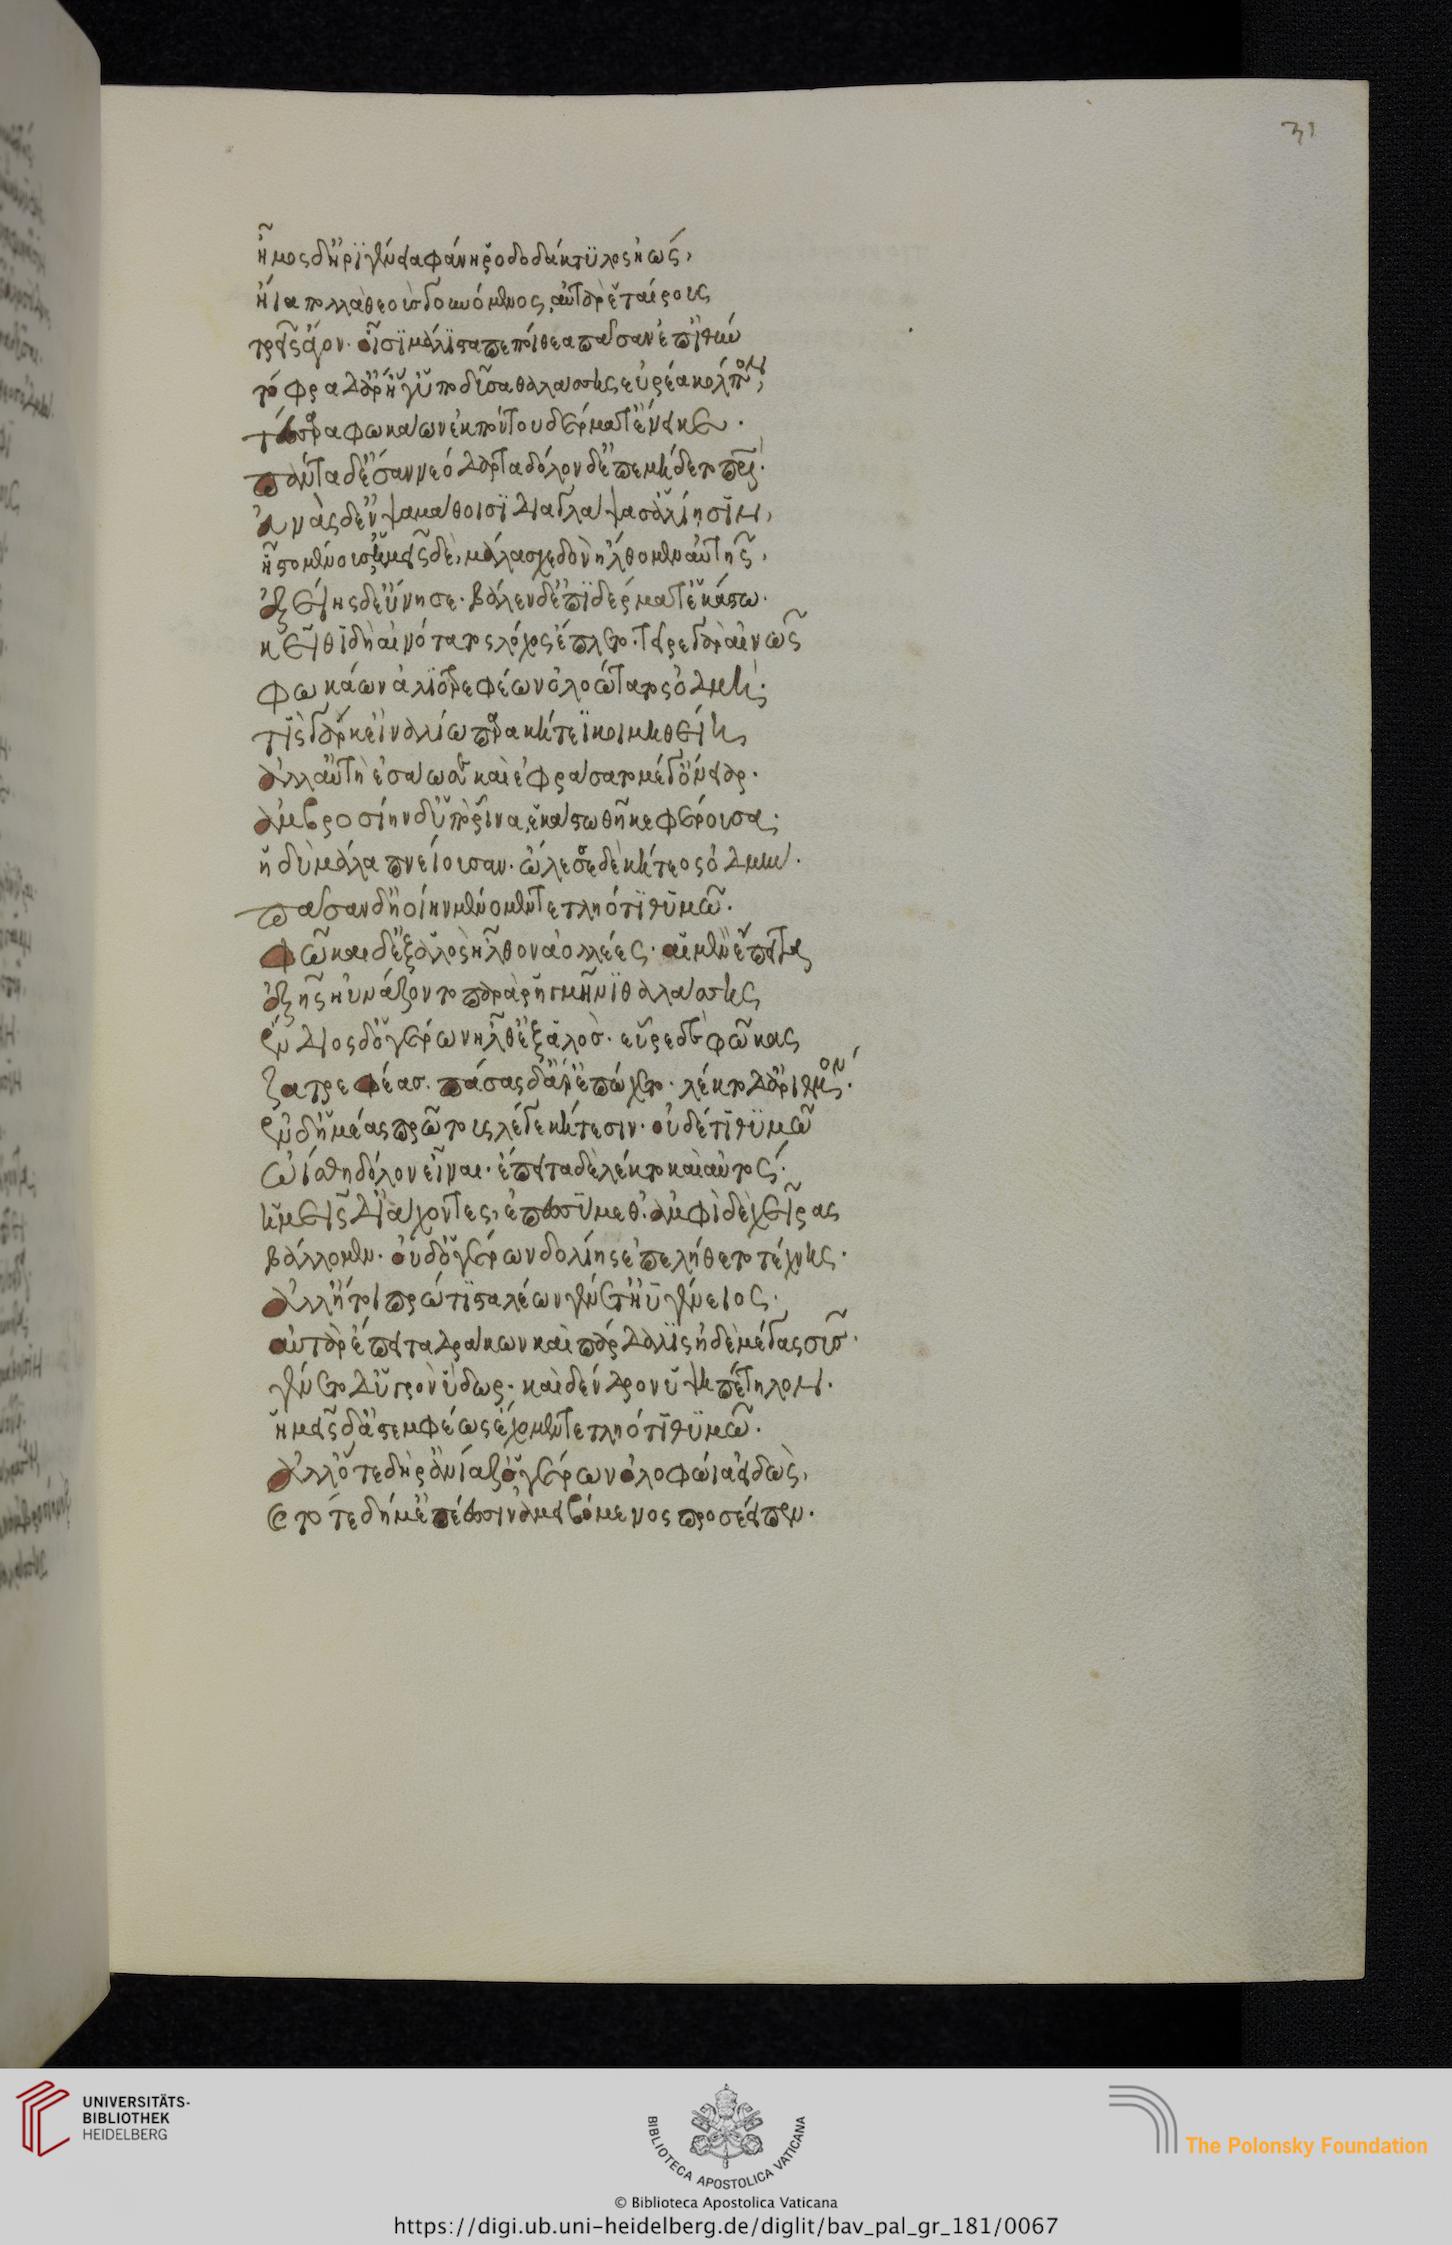 ἦμος δ' ἠριγένεια φάνη ῥοδοδάκτυλος ἠώς,
ἤια πολλὰ θεοὺς γουνόμενος, αὐτὰρ ἑταίρους
τρεῖς ἄγον. οἷσι μάλιστα πεποίθεα πᾶσαν ἐπιθύν
τόφρα δ' ἄρ' ἥ γ' ὑποδῦσα θαλάσσης εὐρέα κόλπον,
τέσσαρα φωκάων ἐκ πόντου δέρματ' ἔνεικε.
πάντα δ' ἔσαν νεόδαρτα δόλον δ' ἐπεμήδετο πατρί.
εὐνὰς δ' ἐν ψαμάθοισι διαγλάψασ' ἁλίησιν,
ἧστο μένουσ', ἡμεῖς δὲ, μάλα σχεδὸν ἤλθομεν αὐτῆς,
ἑξείης δ' εὔνησε. βάλεν δ' ἐπὶ δέρματ' ἑκάστω.
κεῖθι δὴ αἰνότατος λόχος ἔπλετο. τεῖρε γὰρ αἰνῶς
φωκάων ἁλιοτρεφέων ὀλοώτατος ὀδμή.
τίς γάρ κ' εἰναλίω παρα κήτεϊ κοιμηθείη,
ἀλλ' αὐτὴ ἐσάωσε καὶ ἐφράσατο μέγ' ὄνειαρ.
ἀμβροσίην δ' ὑπὸ ῥῖνα, ἑκάστω θῆκε φέρουσα.
ἡδὺ μάλα πνείουσαν. ὤλεσε δὲ κήτεος ὀδμήν.
πᾶσαν δ' ἠοίην μένομεν τετληότι θυμῶ.
φῶκαι δ' ἐξ ἁλὸς ἦλθον ἀολλέες. αἱ μὲν ἔπειτα
ἑξῆς ηὐνάζοντο παρὰ ῥηγμῆνι θαλάσσης
ἔνδιος δ' ὁ γέρων ἦλθ' ἐξ ἁλὸς. εὗρε δὲ φῶκας
ζατρεφέας. πάσας δ' ἄρ' ἐπώχετο. λέκτο δ' ἀριθμόν.
ἐν δ' ἡμέας πρώτους λέγε κήτεσιν. οὐδέ τι θυμῶ
ὠίσθη δόλον εἶναι. ἔπειτα δὲ λέκτο καὶ αὐτός.
ἡμεῖς δ' ἰάχοντες, ἐπεσσύμεθ'. ἀμφὶ δὲ χεῖρας
βάλλομεν. οὐδ' ὁ γέρων δολίης ἐπελήθετο τέχνης.
ἀλλ' ἤτοι πρώτιστα λέων γένετ' ἠϋγένειος.
αὐτὰρ ἔπειτα δράκων καὶ πάρδαλις ἠδὲ μέγας σῦς.
γένετο δ' ὑγρὸν ὕδωρ. καὶ δένδρον ὑψιπέτηλον.
ἡμεῖς δ' ἀστεμφέως ἔχομεν τετληότι θυμῶ.
ἀλλ' ὅτε δή ῥ' ἀνίαζ' ὁ γέρων ὀλοφώια εἰδὼς,
ϛ τότε δή μ' ἐπέεσσιν ἀμειβόμενος προσέειπεν.
31
UNIVERSITÄTS-
BIBLIOTHEK
HEIDELBERG
BIBLIOTECA APOSTOLICA VATICANA
The Polonsky Foundation
© Biblioteca Apostolica Vaticana
https://digi.ub.uni-heidelberg.de/diglit/bav_pal_gr_181/0067